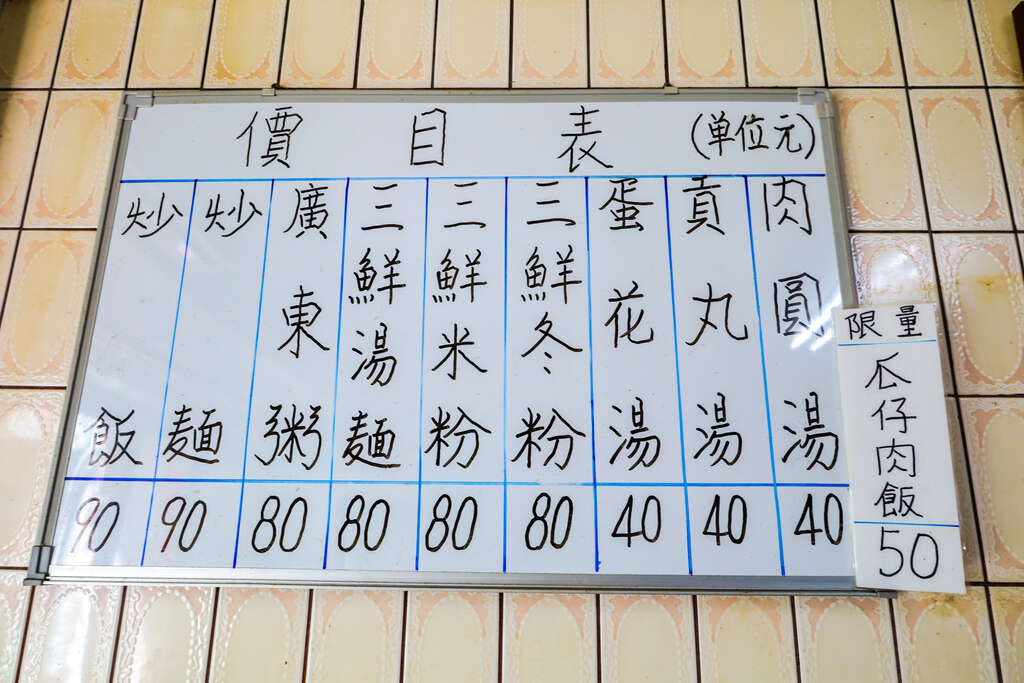 價目表(单位元)
炒飯 90
炒麵 90
廣東粥 80
三鮮湯麵 80
三鮮米粉 80
三鮮冬粉 80
蛋花湯 40
貢丸湯 40
肉圓湯 40
限量
瓜仔肉飯
50